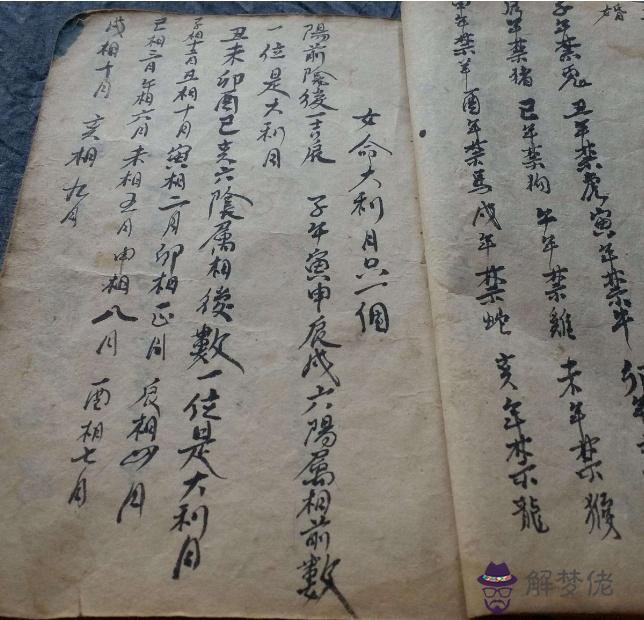 婚
子年禁兔 丑年禁虎 寅年禁牛 卯年
辰年禁猪 巳年禁狗 午年禁雞 未年禁猴
年禁羊 酉年禁馬 戌年禁蛇 亥年禁龍
女命大利月只一個
陽前陰後一吉辰 子午寅申辰戌六陽属相前數
一位是大利月
丑未卯酉巳亥六陰属相後數一位是大利月
子相十二月 丑相十月 寅相二月 卯相正月 辰相四月
巳相三月 午相六月 未相五月 申相八月 酉相七月
戌相十月 亥相九月
解梦佬